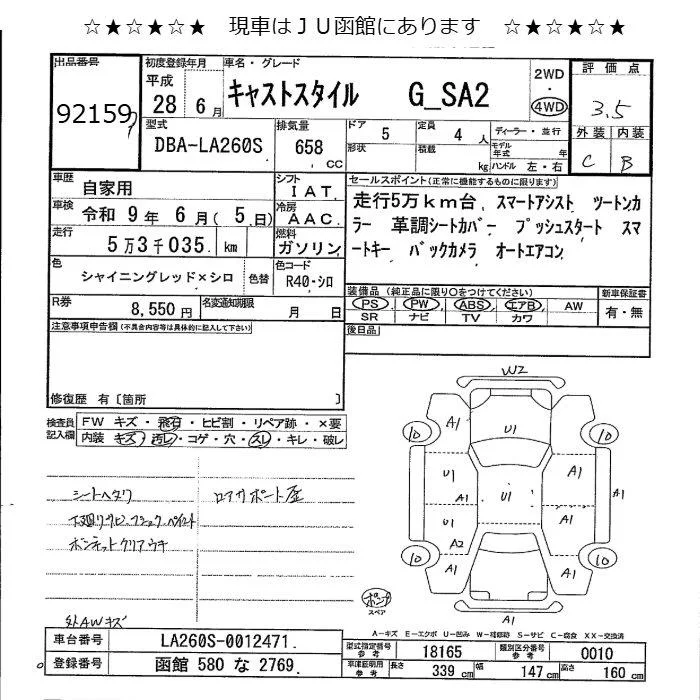 ☆★☆★☆★ 現車はＪＵ函館にあります ☆★☆★☆★
出品番号 初度登録年月 車名・グレード 2WD・4WD 評価点
92159 平成 28年 6月 キャストスタイル G_SA2 3.5
型式 排気量 ドア 5 定員 4人 ディーラー・並行 外装 内装
DBA-LA260S 658CC 形状 積載 kg モデル年式 年 ハンドル 左・右 C B
車歴 自家用 シフト IAT セールスポイント(正常に機能するものに限ります)
車検 令和 9年 6月(5日) 冷房 AAC 走行5万km台 スマートアシスト ツートンカ
走行 5万3千035km 燃料 ガソリン ラー 革調シートカバー プッシュスタート スマ
ートキー バックカメラ オートエアコン
色 シャイニングレッド×シロ 色替 色コード R40・シロ
装備品(純正品に限り○をつけてください) 新車保証書
R券 8,550円 名変通知期限 月 日 PS PW ABS エアB AW 有・無
SR ナビ TV カワ
注意事項申告欄(不具合内容等は具体的に記入して下さい) 後日品
修復歴 有〔箇所 〕
検査員記入欄 FW キズ・飛石・ヒビ割・リペア跡・×要
内装 キズ・汚レ・コゲ・穴・スレ・キレ・破レ
シートヘタリ ロアサポート歪
下廻リサビ、ブラック、ペイント
ボンネットクリアウキ
外AWキズ
W2
A1 U1 10 10
U1 A1 U1 A1 A1
U1 A2 A1
10 10
A1 A1
A1
ポンプ
スペア
A-キズ E-エクボ U-凹み W-補修跡 S-サビ C-腐食 XX-交換済
車台番号 LA260S-0012471 型式指定番号 参考 18165 類別区分番号 参考 0010
登録番号 函館 580 な 2769 車庫証明用 参考 長さ 339cm 幅 147cm 高さ 160cm